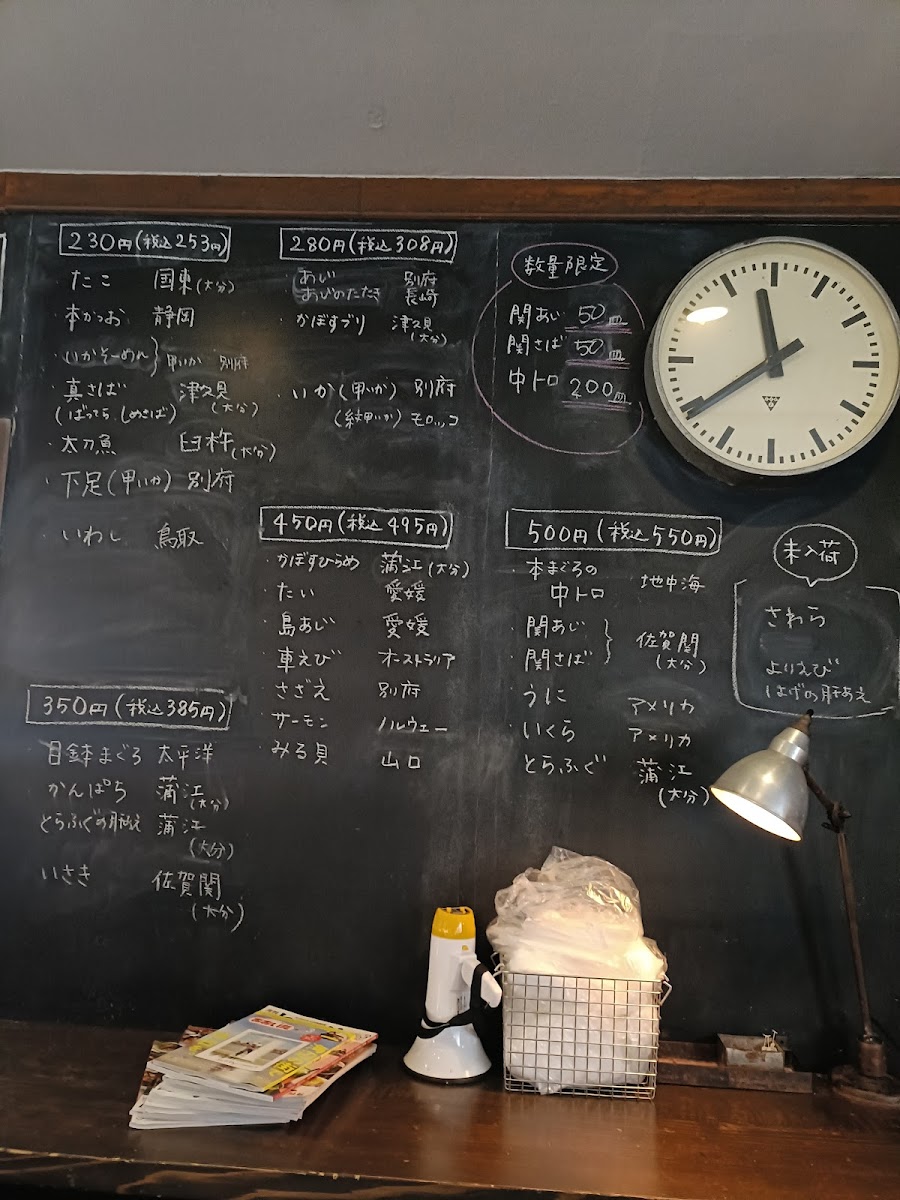 230円(税込253円)
・たこ 国東(大分)
・本かつお 静岡
・いかそーめん}甲いか 別府
・真さば 津久見
(ばってら、しめさば) (大分)
・太刀魚 臼杵(大分)
・下足(甲いか) 別府
・いわし 鳥取
280円(税込308円)
・あじ 別府
あじのたたき 長崎
・かぼすブリ 津久見
(大分)
・いか(甲いか) 別府
(紋甲いか) モロッコ
数量限定
関あじ 50皿
関さば 50皿
中トロ 200皿
450円(税込495円)
・かぼすひらめ 蒲江(大分)
・たい 愛媛
・島あじ 愛媛
・車えび オーストラリア
・さざえ 別府
・サーモン ノルウェー
・みる貝 山口
500円(税込550円)
・本まぐろの
中トロ 地中海
・関あじ
・関さば}佐賀関
(大分)
・うに アメリカ
・いくら アメリカ
・とらふぐ 蒲江
(大分)
未入荷
さわら
よりえび
はげの肝あえ
350円(税込385円)
・目鉢まぐろ 太平洋
・かんぱち 蒲江
(大分)
・とらふぐの肝あえ 蒲江
(大分)
・いさき 佐賀関
(大分)